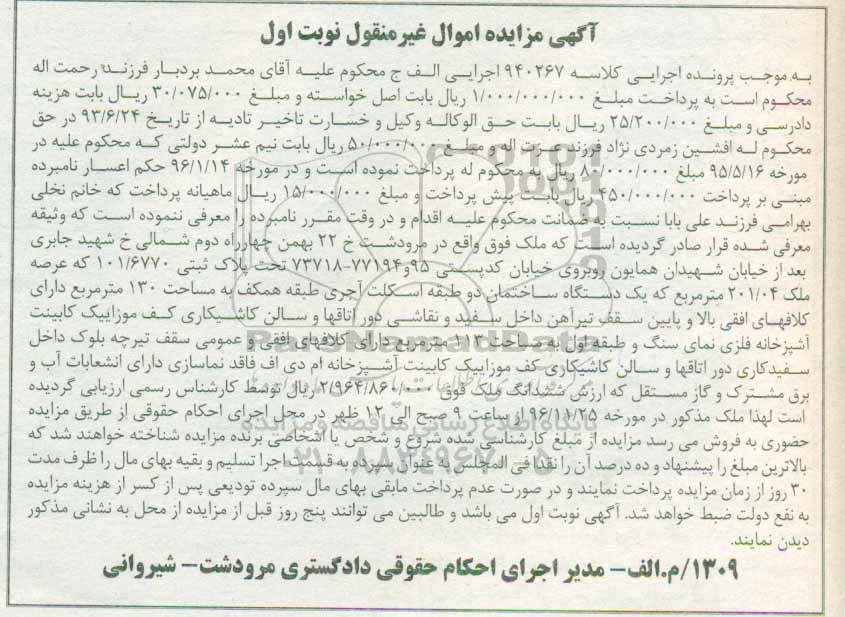 آگهی مزایده اموال غیرمنقول نوبت اول
به موجب پرونده اجرایی کلاسه ۹۴۰۲۶۷ اجرایی الف ج محکوم علیه آقای محمد بردبار فرزند رحمت اله
محکوم است به پرداخت مبلغ ۱/۰۰۰/۰۰۰/۰۰۰ ریال بابت اصل خواسته و مبلغ ۳۰/۰۷۵/۰۰۰ ریال بابت هزینه
دادرسی و مبلغ ۲۵/۲۰۰/۰۰۰ ریال بابت حق الوکاله وکیل و خسارت تاخیر تادیه از تاریخ ۹۳/۶/۲۴ در حق
محکوم له افشین زمردی نژاد فرزند عزت اله و مبلغ ۵۰/۰۰۰/۰۰۰ ریال بابت نیم عشر دولتی که محکوم علیه در
مورخه ۹۵/۵/۱۶ مبلغ ۸۰/۰۰۰/۰۰۰ ریال به محکوم له پرداخت نموده است و در مورخه ۹۶/۱/۱۴ حکم اعسار نامبرده
مبنی بر پرداخت ۴۵۰/۰۰۰/۰۰۰ ریال بابت پیش پرداخت و مبلغ ۱۵/۰۰۰/۰۰۰ ریال ماهیانه پرداخت که خانم نخلی
بهرامی فرزند علی بابا نسبت به ضمانت محکوم علیه اقدام و در وقت مقرر نامبرده را معرفی ننموده است که وثیقه
معرفی شده قرار صادر گردیده است که ملک فوق واقع در مرودشت خ ۲۲ بهمن چهارراه دوم شمالی خ شهید جابری
بعد از خیابان شهیدان همایون روبروی خیابان کدپستی ۹۵و۷۷۱۹۴-۷۳۷۱۸ تحت پلاک ثبتی ۱۰۱/۶۷۷۰ که عرصه
ملک ۲۰۱/۰۴ مترمربع که یک دستگاه ساختمان دو طبقه اسکلت آجری طبقه همکف به مساحت ۱۳۰ مترمربع دارای
کلافهای افقی بالا و پایین سقف تیرآهن داخل سفید و نقاشی دور اتاقها و سالن کاشیکاری کف موزاییک کابینت
آشپزخانه فلزی نمای سنگ و طبقه اول به مساحت ۱۱۳ مترمربع دارای کلافهای افقی و عمومی سقف تیرچه بلوک داخل
سفیدکاری دور اتاقها و سالن کاشیکاری کف موزاییک کابینت آشپزخانه ام دی اف فاقد نماسازی دارای انشعابات آب و
برق مشترک و گاز مستقل که ارزش ششدانگ ملک فوق ۲/۹۶۴/۸۶۰/۰۰۰ ریال توسط کارشناس رسمی ارزیابی گردیده
است لهذا ملک مذکور در مورخه ۹۶/۱۱/۲۵ از ساعت ۹ صبح الی ۱۲ ظهر در محل اجرای احکام حقوقی از طریق مزایده
حضوری به فروش می رسد مزایده از مبلغ کارشناسی شده شروع و شخص یا اشخاصی برنده مزایده شناخته خواهند شد که
بالاترین مبلغ را پیشنهاد و ده درصد آن را نقدا فی المجلس به عنوان سپرده به قسمت اجرا تسلیم و بقیه بهای مال را ظرف مدت
۳۰ روز از زمان مزایده پرداخت نمایند و در صورت عدم پرداخت مابقی بهای مال سپرده تودیعی پس از کسر از هزینه مزایده
به نفع دولت ضبط خواهد شد. آگهی نوبت اول می باشد و طالبین می توانند پنج روز قبل از مزایده از محل به نشانی مذکور
دیدن نمایند.
۱۳۰۹/م.الف- مدیر اجرای احکام حقوقی دادگستری مرودشت- شیروانی
ParsNamadData
پایگاه اطلاع رسانی مناقصه و مزایده